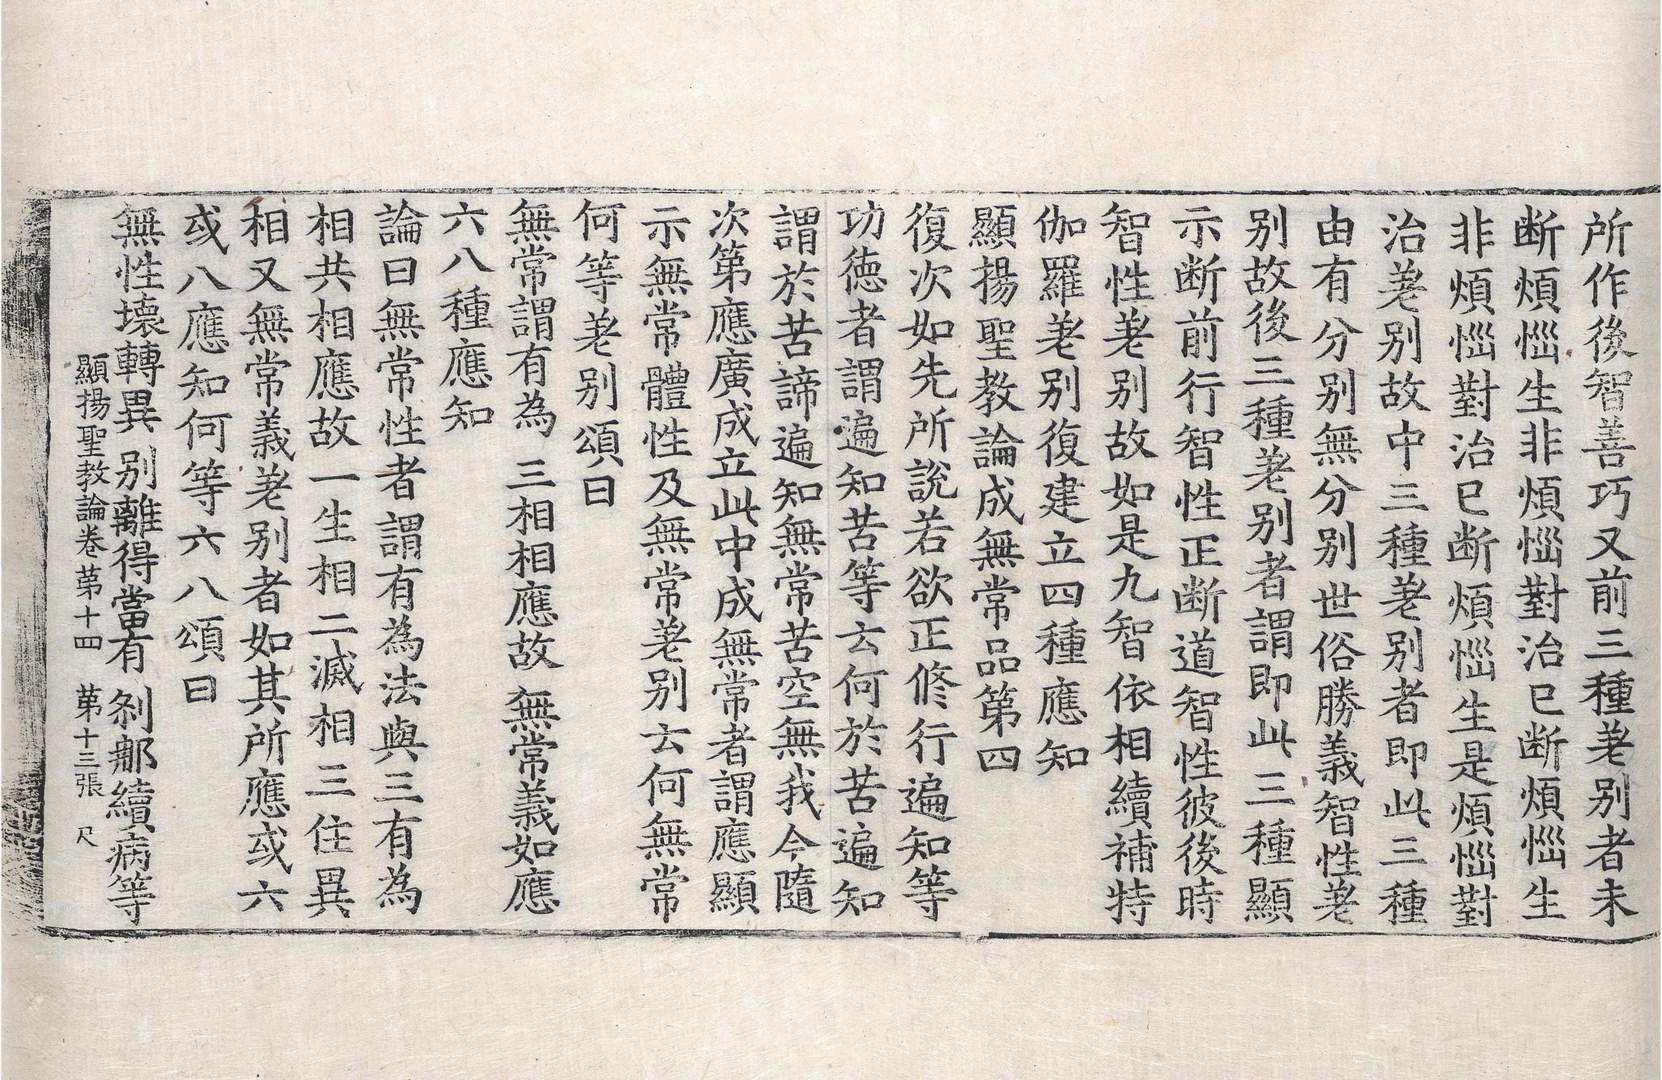 所作後智善巧又前三種差别者未
断煩惱生非煩惱對治已断煩惱生
非煩惱對治已断煩惱生是煩惱對
治差别故中三種差别者即此三種
由有分别無分别世俗勝義智性差
别故後三種差别者謂即此三種顯
示断前行智性正断道智性彼後時
智性差别故如是九智依相續補特
伽羅差别復建立四種應知
顯揚聖教論成無常品第四
復次如先所說若欲正修行遍知等
功德者謂遍知苦等云何於苦遍知
謂於苦諦遍知無常苦空無我今隨
次第應廣成立此中成無常者謂應顯
示無常體性及無常差别云何無常
何等差别頌曰
無常謂有為　三相相應故　無常義如應
六八種應知
論曰無常性者謂有為法與三有為
相共相應故一生相二滅相三住異
相又無常義差别者如其所應或六
或八應知何等六八頌曰
無性壞轉異　别離得當有　刹那續病等
顯揚聖教論卷第十四　第十三張　尺